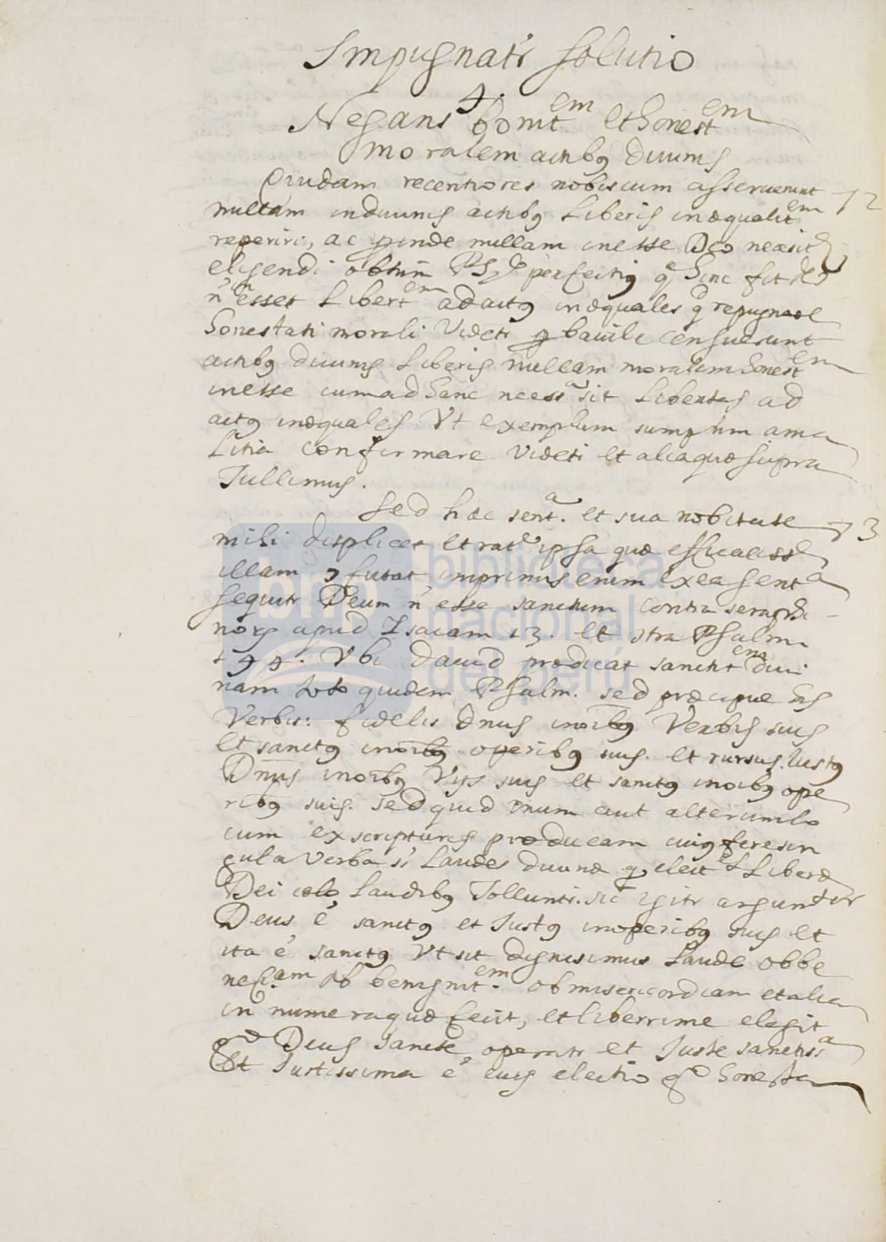 Impugnatr solutio
4.
Negans bonit^em et honest^em
moralem actibq divinis
Quidam recentiores nobiscum asseruerunt 72
nullam in divinis actibq liberis inæqualit^em
reperiri, ac proinde nullam inesse Deo necesit
eligendi obtim perfectiq hinc fit
n esset libert^em ad actq inæquales q repugnare
honestati morali videtr censuerunt
actibq divinis liberis nullam moralem honest^em
inesse cum ad hanc necess^a sit libertas ad
actq inæquales Ut exemplum sumptum ama
litia confirmare videtr et aliaquæ supra
tullimus.
Sed hæc sent^a. et sua nobitate 73
mihi displicet et rat^e ipsa quæ efficaciss
illam futat imprimis enim ex ea sent^a
sequitr Deum n' esse sanctum contra
apud Isaiam et Psalm
144. Ubi David prædicat sanctit^em divi
nam toto quidem Psalm. sed præcipue
Verbis: fidelis Dnus in oibq Verbis suis
et sanctq in oibq operibq suis. et rursus. Iustq
Dnus in oibq Vijs suis et sanctq in oibq ope
ribq suis. sed quid unum aut alterum lo
cum ex scripturis producam cuiq fere sin
gula verba st laudes divinæ q liberæ
Dei laudibq tolluntr. sic igitr arguuntur
Deus é sanctq et Iustq in operibq suis et
ita é sanctq Ut sit dignisimus laude ob be
nefi.^am Ob benignit^em. Ob misericordiam et alia
in numeraquæ fecit, et liberrime elegit
g^o Deus sancte operatr et Iuste sanctiss^a
Et Iustissima é eius electio g^o honesta